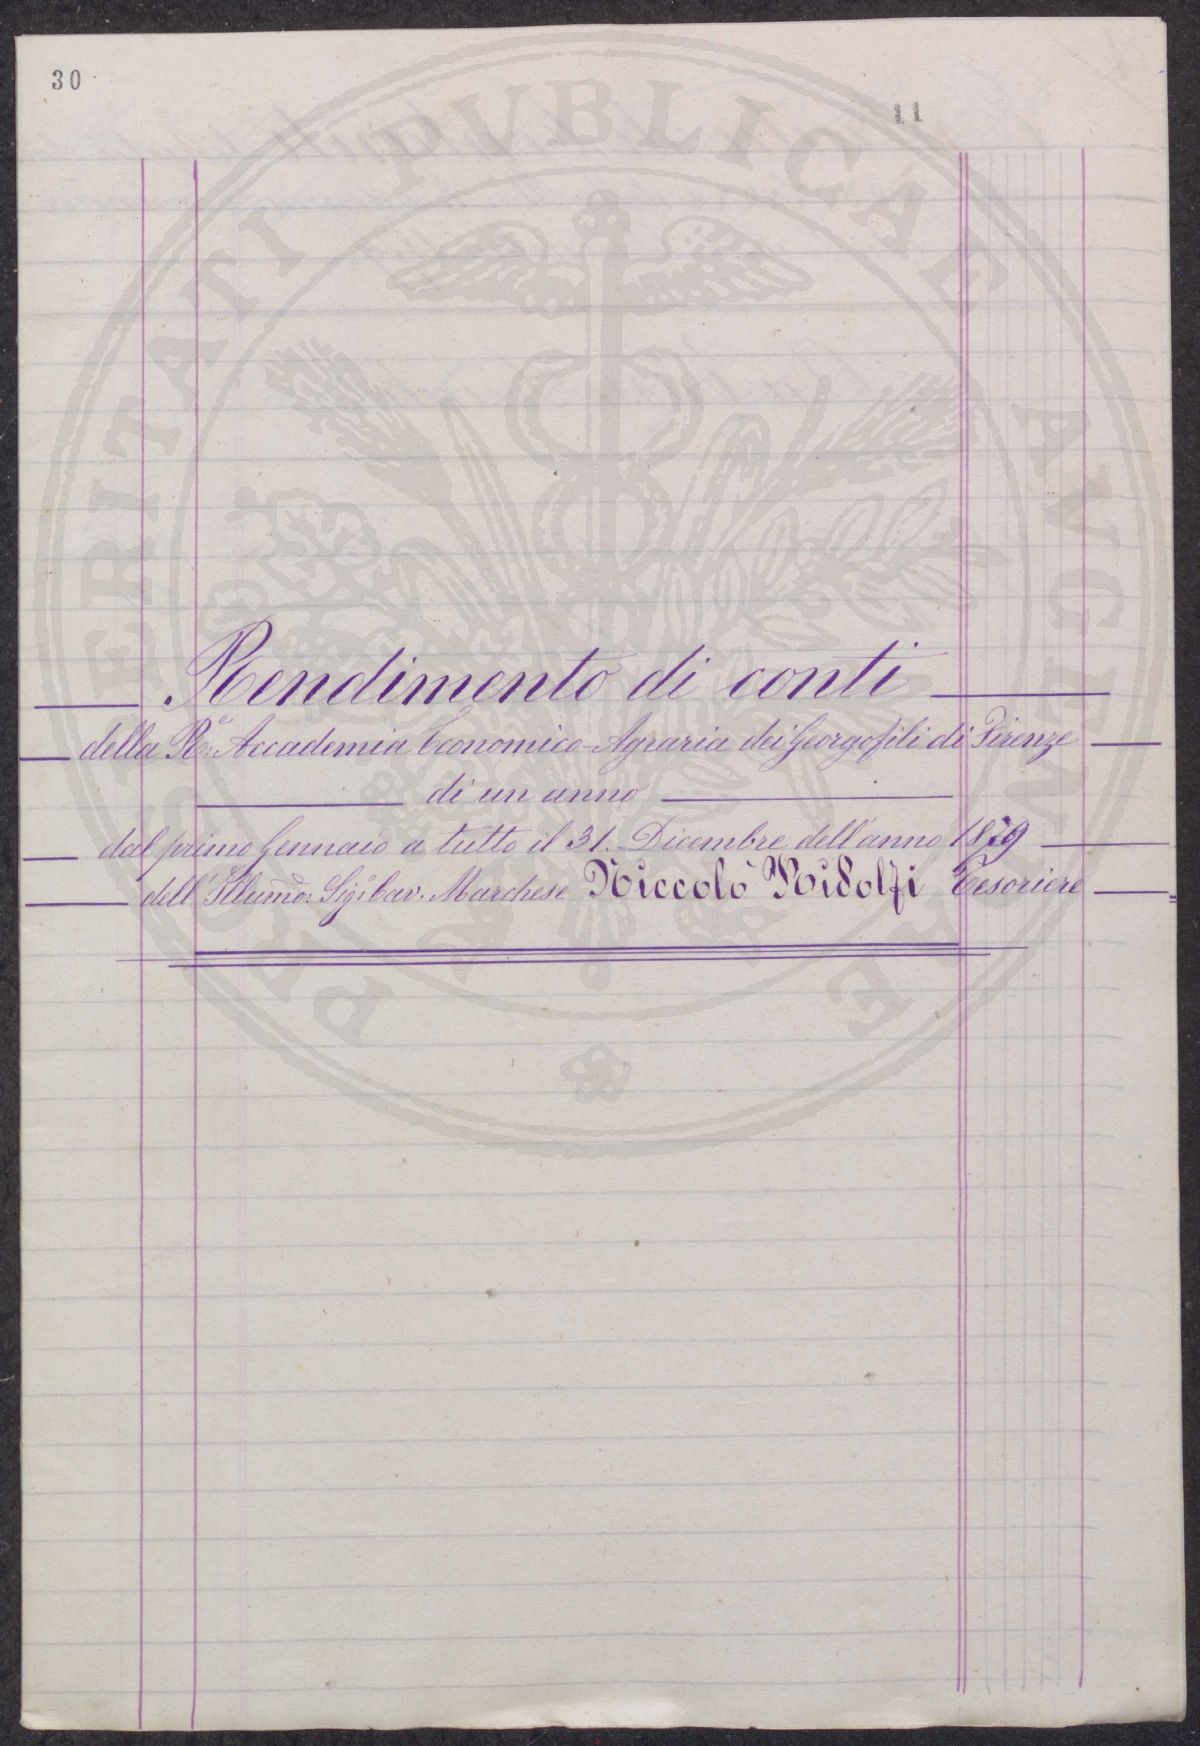 30
11
PROSPERITATI PVBLICAE AVGENDAE
Rendimento di conti
della R.e Accademia Economico-Agraria dei Georgofili di Firenze
di un anno
dal primo Gennaio a tutto il 31. Dicembre dell'anno 1879
dell'Illumo: Sigr Cav. Marchese Niccolò Ridolfi Tesoriere